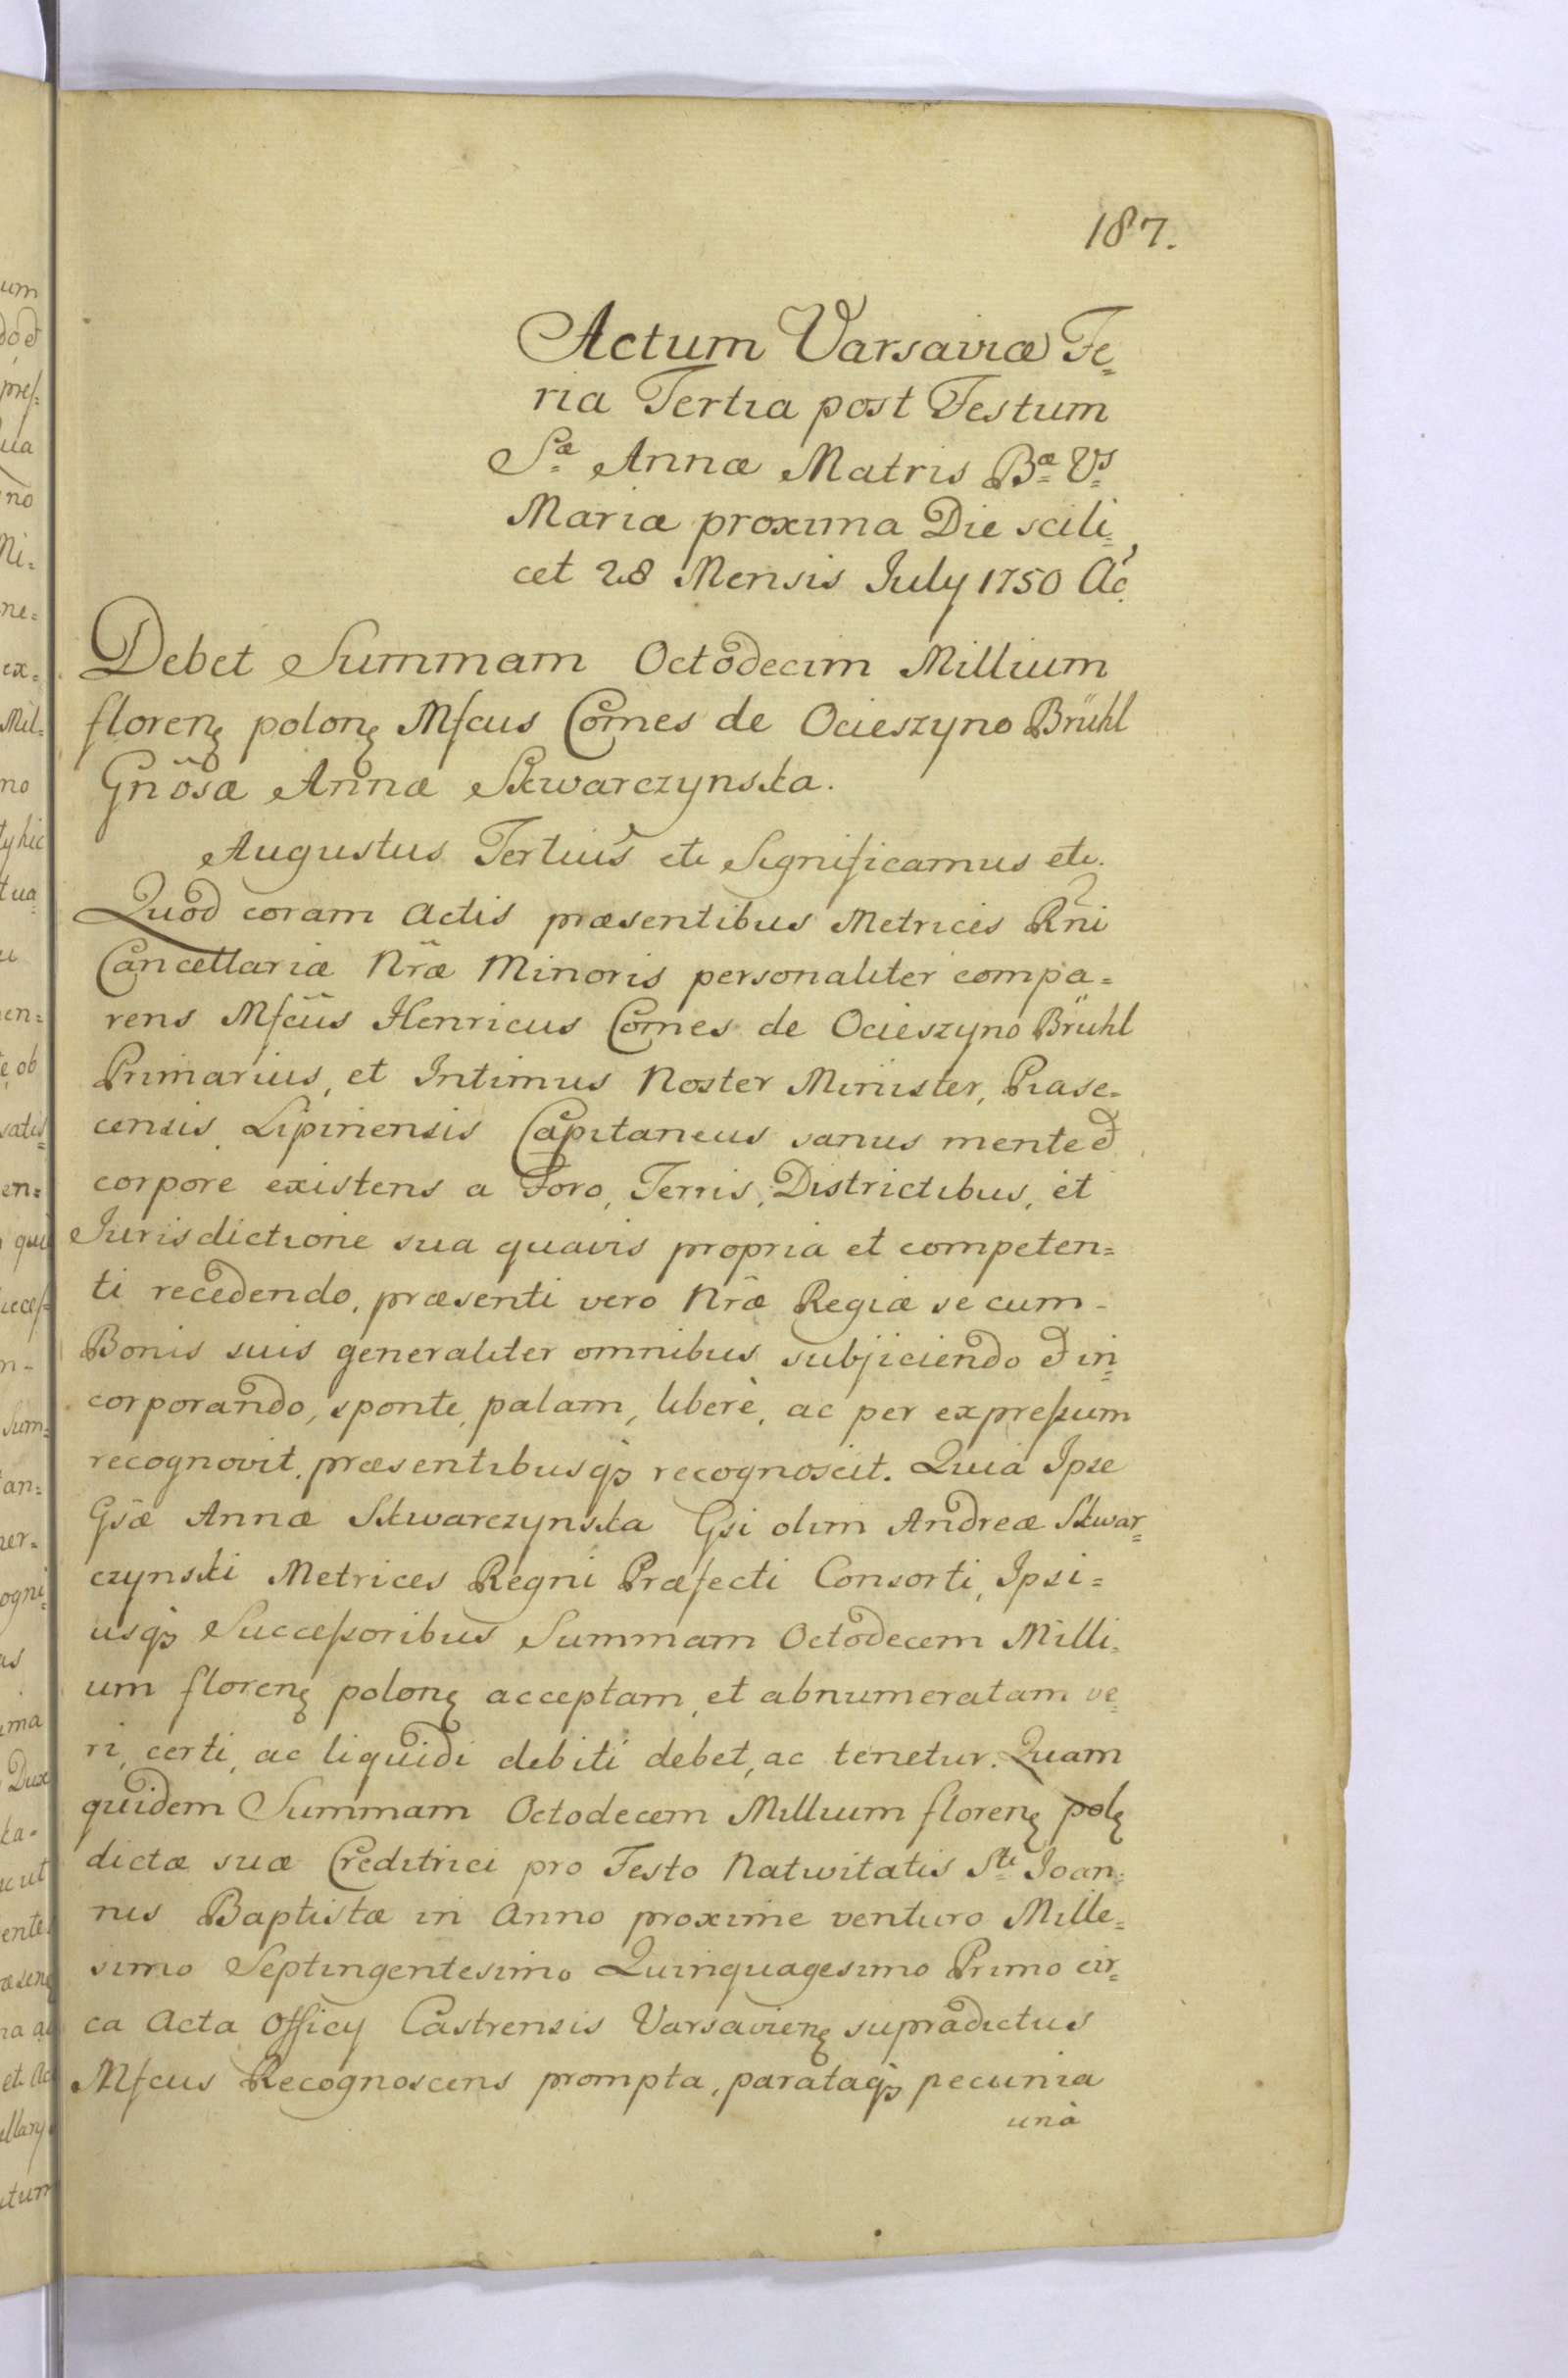 187.
Actum Varsaviæ Fe=
ria Tertia post Festum
Sæ Annæ Matris Bæ Vs
Mariæ proxima Die scili=
cet 28 Mensis July 1750 Ao.
Debet Summam Octodecim Millium
florenꝫ polonꝫ Mfcus Comes de Ocieszyno Brühl
Gnõsæ Annæ Skwarczynska.
Augustus Tertius etc Significamus etc.
Quod coram Actis præsentibus Metrices Rñi
Cancellariæ Nrãæ Minoris personaliter compa=
rens Mfcus Henricus Comes de Ocieszyno Brühl
Primarius, et Intimus Noster Minister, Piase=
censis, Lipinensis Capitaneus sanus mente et
corpore existens a Foro, Terris, Districtibus, et
Jurisdictione sua quavis propria et competen=
ti recedendo, præsenti vero Nrãæ Regiæ se cum
Bonis suis generaliter omnibus subjiciendo et in=
corporando, sponte, palam, liberè, ac per expreſsum
recognovit, præsentibusqꝫ recognoscit. Quia Ipse
Gsæ Annæ Skwarczynska Gsi olim Andreæ Skwar=
czynski Metrices Regni Præfecti Consorti, Ipsi=
usqꝫ Succeſsoribus Summam Octodecem Milli=
um florenꝫ polonꝫ acceptam, et abnumeratam ve=
ri, certi, ac liquidi debiti debet, ac tenetur. Quam
quidem Summam Octodecem Millium florenꝫ polꝫ
dictæ suæ Creditrici pro Festo Nativitatis Sti Joan=
nis Baptistæ in Anno proxime venturo Mille=
simo Septingentesimo Quinquagesimo Primo cir=
ca Acta Officy Castrensis Varsavienꝫ supradictus
Mfcus Recognoscens prompta, parataqꝫ pecunia
unà